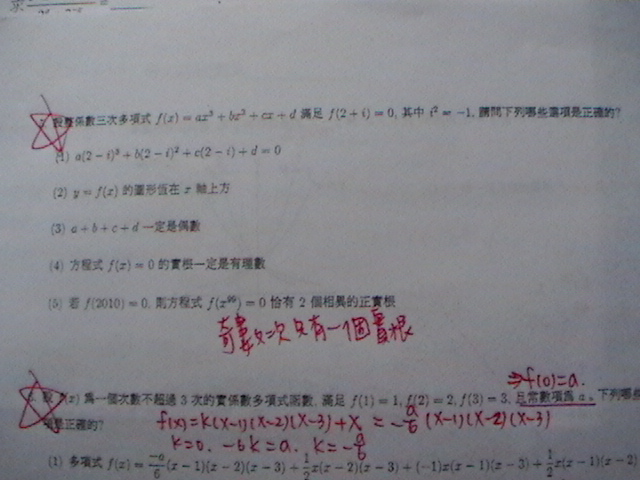 設整係數三次多項式 f(x) = ax³ + bx² + cx + d 滿足 f(2 + i) = 0, 其中 i² = -1, 請問下列哪些選項是正確的?
(1) a(2 - i)³ + b(2 - i)² + c(2 - i) + d = 0
(2) y = f(x) 的圖形恆在 x 軸上方
(3) a + b + c + d 一定是偶數
(4) 方程式 f(x) = 0 的實根一定是有理數
(5) 若 f(2010) = 0, 則方程式 f(x⁹⁹) = 0 恰有 2 個相異的正實根
奇數次只有一個實根
⇒f(0)=a.
設 f(x) 為一個次數不超過 3 次的實係數多項式函數, 滿足 f(1) = 1, f(2) = 2, f(3) = 3, 且常數項為 a。下列哪
項是正確的?
f(x)=k(x-1)(x-2)(x-3)+x = -a/6 (x-1)(x-2)(x-3)
k=0. -6k=a. k=-a/6
(1) 多項式 f(x) = -a/6 (x - 1)(x - 2)(x - 3) + 1/2 x(x - 2)(x - 3) + (-1)x(x - 1)(x - 3) + 1/2 x(x - 1)(x - 2)